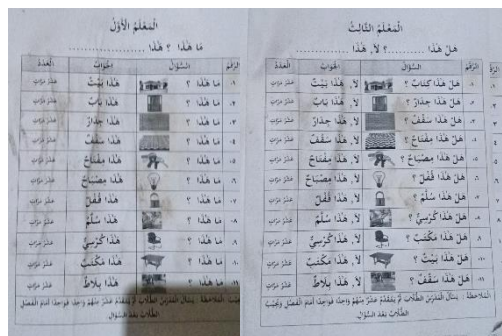 الْمَعْلَمُ الثَّالِثُ
هَلْ هَذَا ..........؟ لَا, هَذَا
الرَّقْمُ السُّؤَالُ الْجَوَابُ الْعَدَدُ
١. هَلْ هَذَا كِتَابٌ ؟ لَا, هَذَا بَيْتٌ عَشْرُ مَرَّاتٍ
٢. هَلْ هَذَا جِدَارٌ ؟ لَا, هَذَا بَابٌ عَشْرُ مَرَّاتٍ
٣. هَلْ هَذَا سَقْفٌ ؟ لَا, هَذَا جِدَارٌ عَشْرُ مَرَّاتٍ
٤. هَلْ هَذَا مِفْتَاحٌ ؟ لَا, هَذَا سَقْفٌ عَشْرُ مَرَّاتٍ
٥. هَلْ هَذَا مِصْبَاحٌ ؟ لَا, هَذَا مِفْتَاحٌ عَشْرُ مَرَّاتٍ
٦. هَلْ هَذَا قُفْلٌ ؟ لَا, هَذَا مِصْبَاحٌ عَشْرُ مَرَّاتٍ
٧. هَلْ هَذَا سُلَّمٌ ؟ لَا, هَذَا قُفْلٌ عَشْرُ مَرَّاتٍ
٨. هَلْ هَذَا كُرْسِيٌّ ؟ لَا, هَذَا سُلَّمٌ عَشْرُ مَرَّاتٍ
٩. هَلْ هَذَا مَكْتَبٌ ؟ لَا, هَذَا كُرْسِيٌّ عَشْرُ مَرَّاتٍ
١٠. هَلْ هَذَا بَيْتٌ ؟ لَا, هَذَا مَكْتَبٌ عَشْرُ مَرَّاتٍ
١١. هَلْ هَذَا سَقْفٌ ؟ لَا, هَذَا بِلَاطٌ عَشْرُ مَرَّاتٍ
الْمُلَاحَظَةُ : يَسْأَلُ الْمُدَرِّسُ الطُّلَّابَ ثُمَّ يَتَقَدَّمُ عَشْرٌ مِنْهُمْ وَاحِدًا فَوَاحِدًا أَمَامَ الْفَصْلِ وَيُجِيْبُ
الطُّلَّابُ بَعْدَ السُّؤَالِ.
الْمَعْلَمُ الْأَوَّلُ
مَا هَذَا ؟ هَذَا ....................
الرَّقْمُ السُّؤَالُ الْجَوَابُ الْعَدَدُ
١. مَا هَذَا ؟ هَذَا بَيْتٌ عَشْرُ مَرَّاتٍ
٢. مَا هَذَا ؟ هَذَا بَابٌ عَشْرُ مَرَّاتٍ
٣. مَا هَذَا ؟ هَذَا جِدَارٌ عَشْرُ مَرَّاتٍ
٤. مَا هَذَا ؟ هَذَا سَقْفٌ عَشْرُ مَرَّاتٍ
٥. مَا هَذَا ؟ هَذَا مِفْتَاحٌ عَشْرُ مَرَّاتٍ
٦. مَا هَذَا ؟ هَذَا مِصْبَاحٌ عَشْرُ مَرَّاتٍ
٧. مَا هَذَا ؟ هَذَا قُفْلٌ عَشْرُ مَرَّاتٍ
٨. مَا هَذَا ؟ هَذَا سُلَّمٌ عَشْرُ مَرَّاتٍ
٩. مَا هَذَا ؟ هَذَا كُرْسِيٌّ عَشْرُ مَرَّاتٍ
١٠. مَا هَذَا ؟ هَذَا مَكْتَبٌ عَشْرُ مَرَّاتٍ
١١. مَا هَذَا ؟ هَذَا بِلَاطٌ عَشْرُ مَرَّاتٍ
الْمُلَاحَظَةُ : يَسْأَلُ الْمُدَرِّسُ الطُّلَّابَ ثُمَّ يَتَقَدَّمُ عَشْرٌ مِنْهُمْ وَاحِدًا فَوَاحِدًا أَمَامَ الْفَصْلِ
الطُّلَّابُ بَعْدَ السُّؤَالِ.